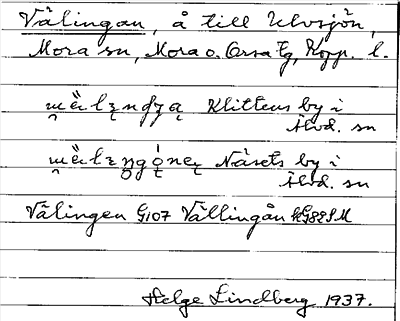 Välingan, å till Ulvsjön,
Mora sn, Mora o. Orsa tg, Kopp. l.
Klittens by i
Älvd. sn
Näsets by i
Älvd. sn
Välingen G107 Vällingån
Helge Lindberg 1937.